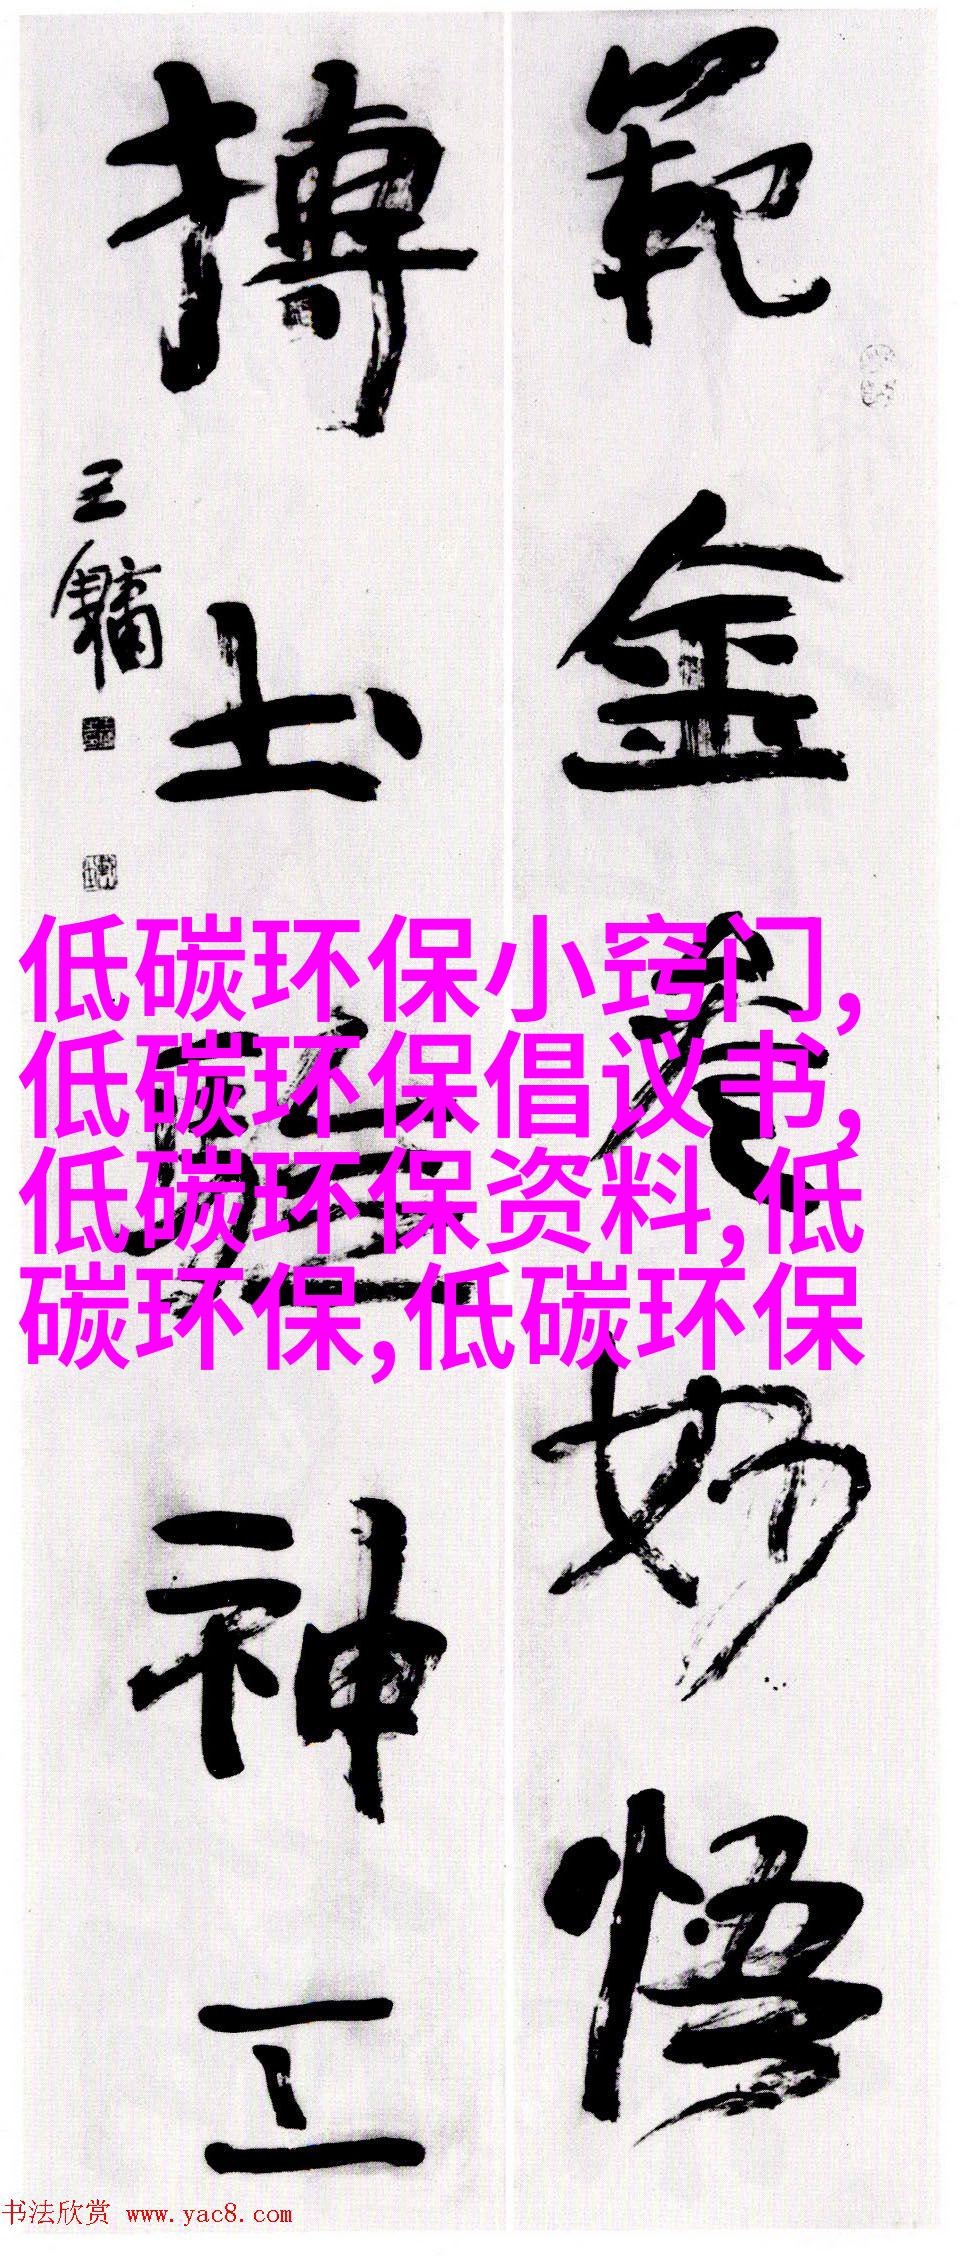 範金妙悟
摶土神工
王鏞
低碳环保小窍门,
低碳环保倡议书,
低碳环保资料,低
碳环保,低碳环保
书法欣赏 www.yac8.com